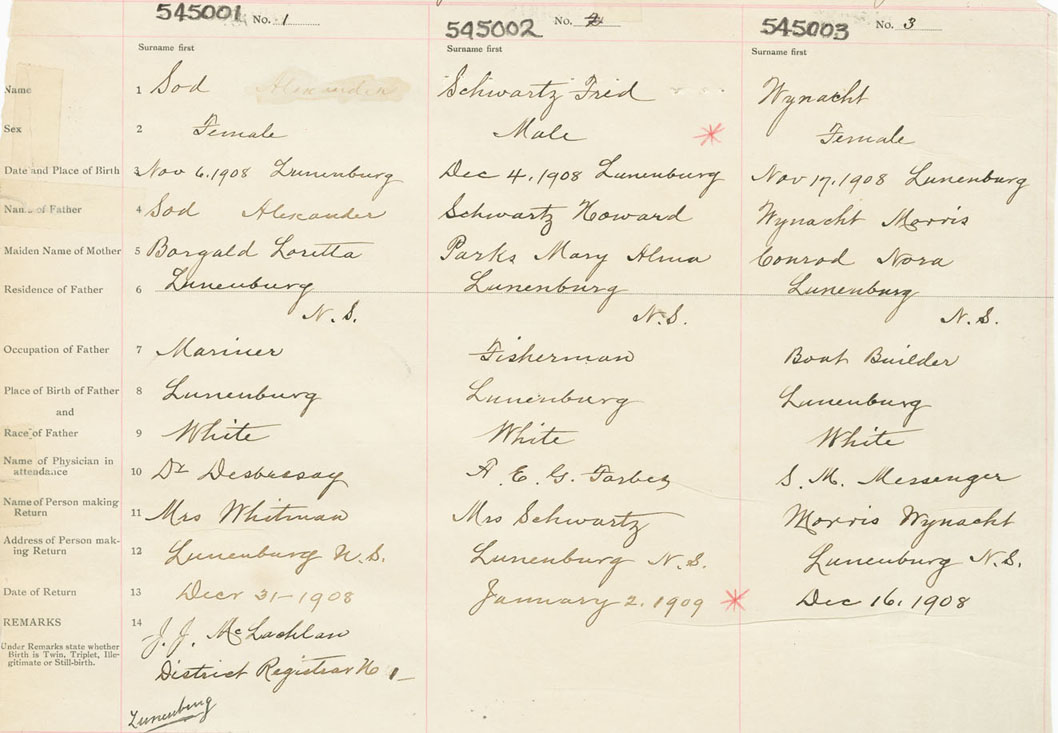 545001 No. 1 545002 No. 2 545003 No. 3
Surname first Surname first Surname first
Name 1 Sod Alexander Schwartz Fred Wynacht
Sex 2 Female Male Female
Date and Place of Birth 3 Nov 6. 1908 Lunenburg Dec 4. 1908 Lunenburg Nov 17. 1908 Lunenburg
Name of Father 4 Sod Alexander Schwartz Howard Wynacht Morris
Maiden Name of Mother 5 Borgald Loretta Parks Mary Alma Conrod Nora
Residence of Father 6 Lunenburg Lunenburg Lunenburg
N.S. N.S. N.S.
Occupation of Father 7 Mariner Fisherman Boat Builder
Place of Birth of Father 8 Lunenburg Lunenburg Lunenburg
and
Race of Father 9 White White White
Name of Physician in
attendance 10 Dr Desbressay A. E. G. Forbes S. M. Messenger
Name of Person making
Return 11 Mrs Whitman Mrs Schwartz Morris Wynacht
Address of Person mak-
ing Return 12 Lunenburg N.S. Lunenburg N.S. Lunenburg N.S.
Date of Return 13 Decr 31-1908 January 2. 1909 Dec 16. 1908
REMARKS 14 J. J. McLachlan
Under Remarks state whether
Birth is Twin, Triplet, Ille-
gitimate or Still-birth.
District Registrar No 1
Lunenburg